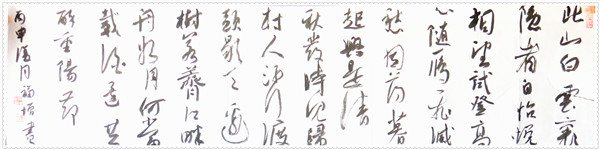 此山白雲裏
隱者自怡悅
相望試登高
心隨鴈飛滅
愁因薄暮
起興是清
秋發時見歸
村人沙行渡
頭歇天邊
樹若薺江畔
舟如月何當
載酒來共
醉重陽節
丙申 月 書